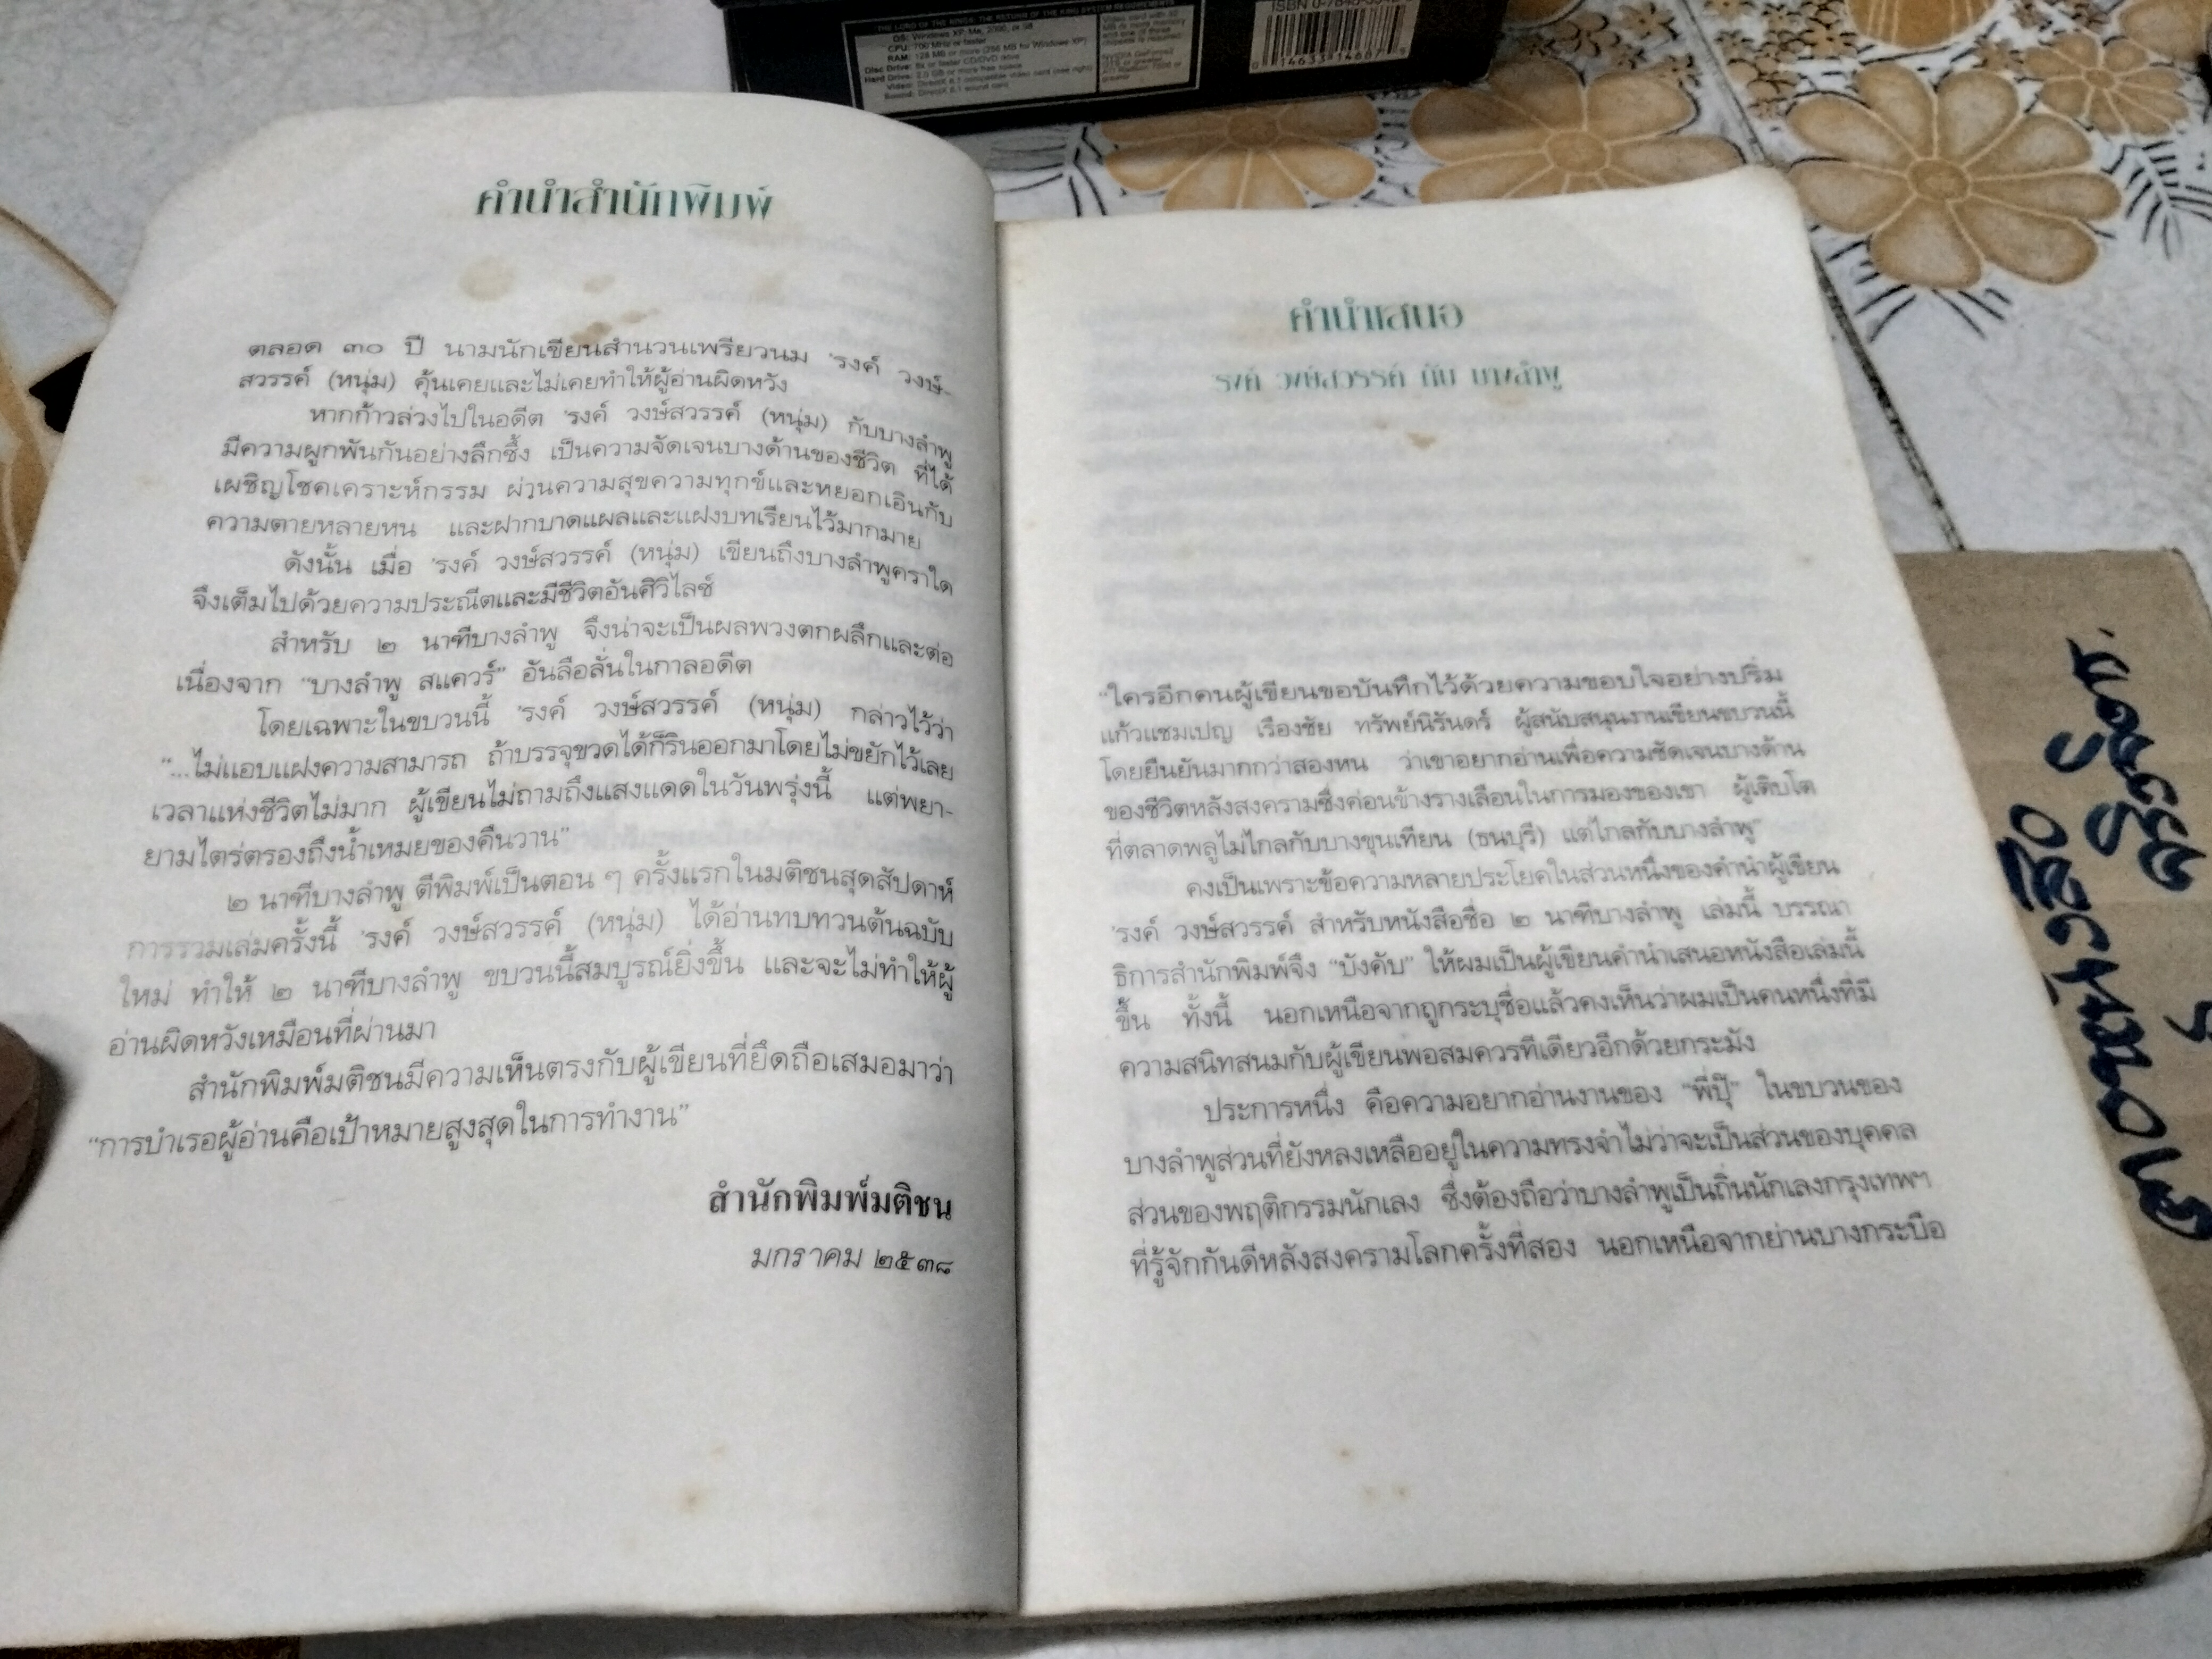 THE LORD OF THE RINGS: THE RETURN OF THE KING SYSTEM REQUIREMENTS
OS: Windows XP, Me, 2000, or 98
CPU: 700 MHz or faster
RAM: 128 MB or more (256 MB for Windows XP)
Disc Drive: 8x or faster CD/DVD drive
Hard Drive:
Video:
Sound: DirectX 8.1 sound card
คำนำสำนักพิมพ์
ตลอด ๓๐ ปี นามนักเขียนสำนวนเพรียวนม 'รงค์ วงษ์-
สวรรค์ (หนุ่ม) คุ้นเคยและไม่เคยทำให้ผู้อ่านผิดหวัง
หากก้าวล่วงไปในอดีต 'รงค์ วงษ์สวรรค์ (หนุ่ม) กับบางลำพู
มีความผูกพันกันอย่างลึกซึ้ง เป็นความจัดเจนบางด้านของชีวิต ที่ได้
เผชิญโชคเคราะห์กรรม ผ่านความสุขความทุกข์และหยอกเอินกับ
ความตายหลายหน และฝากบาดแผลและแฝงบทเรียนไว้มากมาย
ดังนั้น เมื่อ 'รงค์ วงษ์สวรรค์ (หนุ่ม) เขียนถึงบางลำพูคราใด
จึงเต็มไปด้วยความประณีตและมีชีวิตอันศิวิไลซ์
สำหรับ ๒ นาฑีบางลำพู จึงน่าจะเป็นผลพวงตกผลึกและต่อ
เนื่องจาก "บางลำพู สแควร์" อันลือลั่นในกาลอดีต
โดยเฉพาะในขบวนนี้ 'รงค์ วงษ์สวรรค์ (หนุ่ม) กล่าวไว้ว่า
"...ไม่แอบแฝงความสามารถ ถ้าบรรจุขวดได้ก็รินออกมาโดยไม่ขยักไว้เลย
เวลาแห่งชีวิตไม่มาก ผู้เขียนไม่ถามถึงแสงแดดในวันพรุ่งนี้ แต่พยา-
ยามไตร่ตรองถึงน้ำเหมยของคืนวาน"
๒ นาฑีบางลำพู ตีพิมพ์เป็นตอน ๆ ครั้งแรกในมติชนสุดสัปดาห์
การรวมเล่มครั้งนี้ 'รงค์ วงษ์สวรรค์ (หนุ่ม) ได้อ่านทบทวนต้นฉบับ
ใหม่ ทำให้ ๒ นาฑีบางลำพู ขบวนนี้สมบูรณ์ยิ่งขึ้น และจะไม่ทำให้ผู้
อ่านผิดหวังเหมือนที่ผ่านมา
สำนักพิมพ์มติชนมีความเห็นตรงกับผู้เขียนที่ยึดถือเสมอมาว่า
"การบำเรอผู้อ่านคือเป้าหมายสูงสุดในการทำงาน"
สำนักพิมพ์มติชน
มกราคม ๒๕๓๘
คำนำเสนอ
'รงค์ วงษ์สวรรค์ กับ บางลำพู
"ใครอีกคนผู้เขียนขอบันทึกไว้ด้วยความขอบใจอย่างปริ่ม
แก้วแชมเปญ เรืองชัย ทรัพย์นิรันดร์ ผู้สนับสนุนงานเขียนขบวนนี้
โดยยืนยันมากกว่าสองหน ว่าเขาอยากอ่านเพื่อความชัดเจนบางด้าน
ของชีวิตหลังสงครามซึ่งค่อนข้างรางเลือนในการมองของเขา ผู้เติบโต
ที่ตลาดพลูไม่ไกลกับบางขุนเทียน (ธนบุรี) แต่ไกลกับบางลำพู"
คงเป็นเพราะข้อความหลายประโยคในส่วนหนึ่งของคำนำผู้เขียน
'รงค์ วงษ์สวรรค์ สำหรับหนังสือชื่อ ๒ นาฑีบางลำพู เล่มนี้ บรรณา
ธิการสำนักพิมพ์จึง "บังคับ" ให้ผมเป็นผู้เขียนคำนำเสนอหนังสือเล่มนี้
ขึ้น ทั้งนี้ นอกเหนือจากถูกระบุชื่อแล้วคงเห็นว่าผมเป็นคนหนึ่งที่มี
ความสนิทสนมกับผู้เขียนพอสมควรทีเดียวอีกด้วยกระมัง
ประการหนึ่ง คือความอยากอ่านงานของ "พี่ปุ๊" ในขบวนของ
บางลำพูส่วนที่ยังหลงเหลืออยู่ในความทรงจำไม่ว่าจะเป็นส่วนของบุคคล
ส่วนของพฤติกรรมนักเลง ซึ่งต้องถือว่าบางลำพูเป็นถิ่นนักเลงกรุงเทพฯ
ที่รู้จักกันดีหลังสงครามโลกครั้งที่สอง นอกเหนือจากย่านบางกระบือ